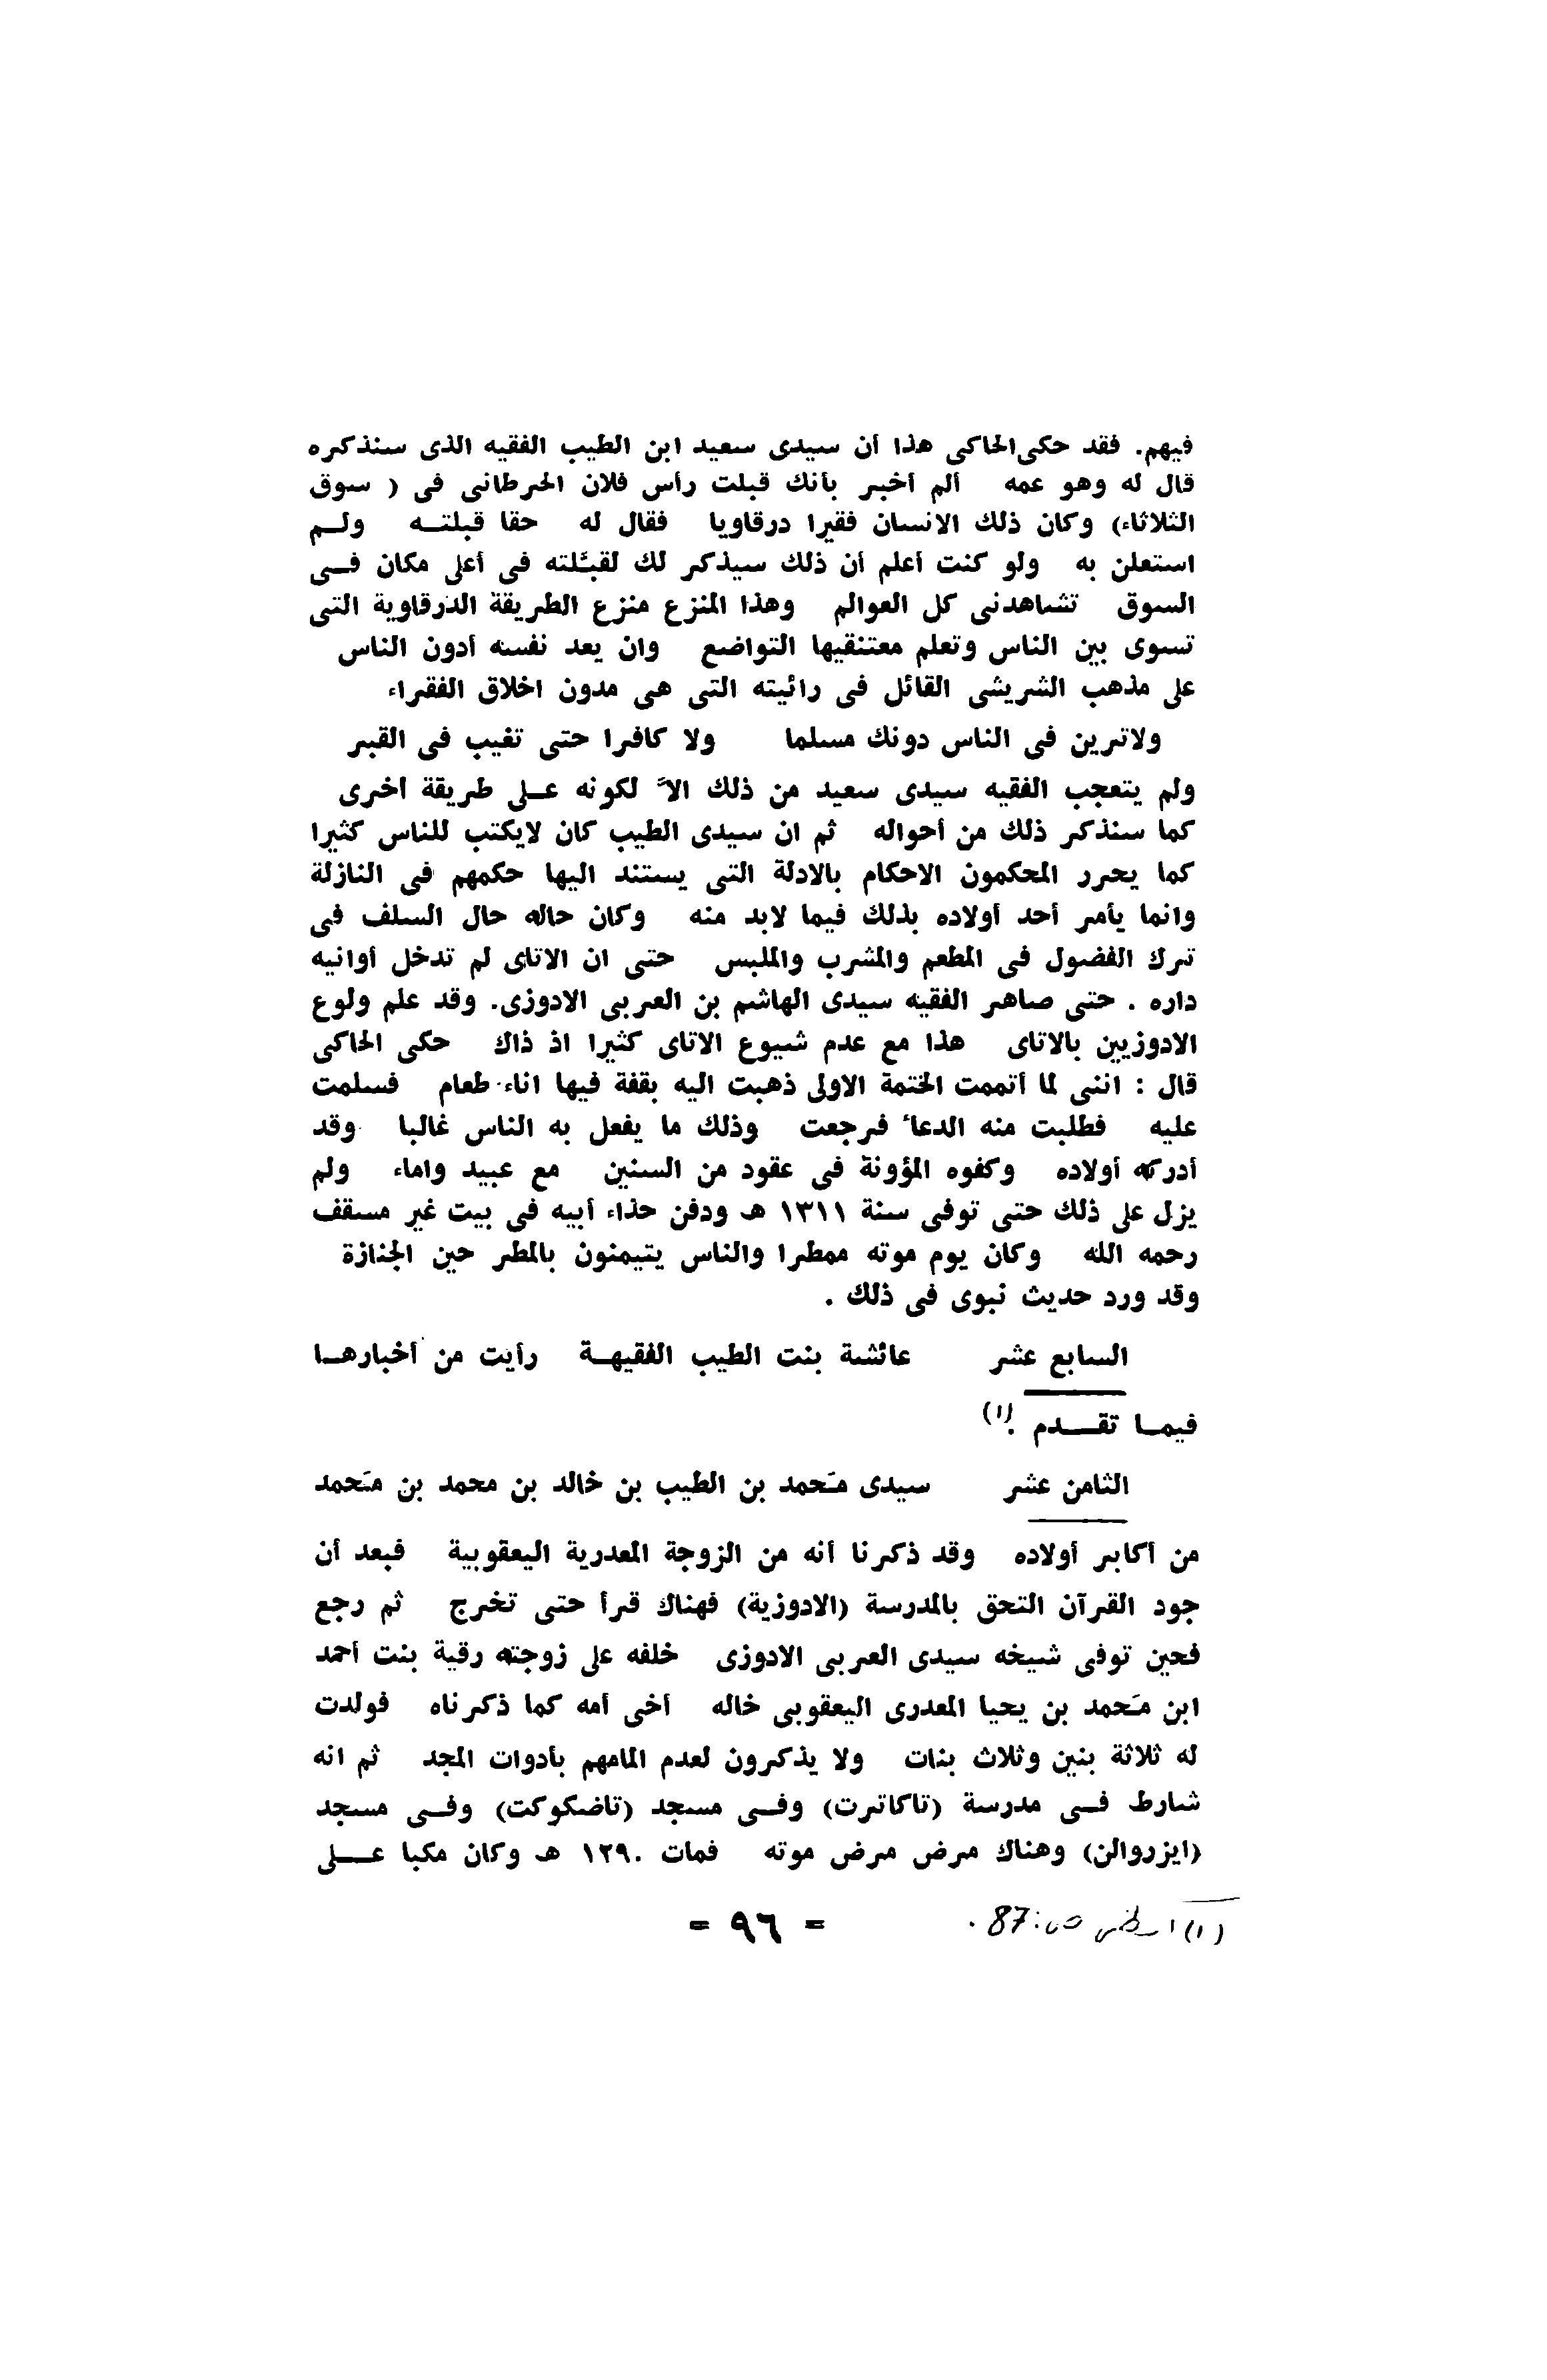 فيهم. فقد حكى الحاكى هذا أن سيدى سعيد ابن الطيب الفقيه الذى سنذكره
قال له وهو عمه ألم أخبر بأنك قبلت رأس فلان الحرطانى فى ( سوق
الثلاثاء) وكان ذلك الانسان فقيرا درقاويا فقال له حقا قبلتــه ولــم
استعلن به ولو كنت أعلم أن ذلك سيذكر لك لقبَّلته فى أعلى مكان فــى
السوق تشاهدنى كل العوالم وهذا المنزع منزع الطريقة الدرقاوية التى
تسوى بين الناس وتعلم معتنقيها التواضع وان يعد نفسه أدون الناس
على مذهب الشريشى القائل فى رائيته التى هى مدون اخلاق الفقراء
ولاترين فى الناس دونك مسلما ولا كافرا حتى تغيب فى القبر
ولم يتعجب الفقيه سيدى سعيد من ذلك الاَّ لكونه عــلى طريقة اخرى
كما سنذكر ذلك من أحواله ثم ان سيدى الطيب كان لايكتب للناس كثيرا
كما يحرر المحكمون الاحكام بالادلة التى يستند اليها حكمهم فى النازلة
وانما يأمر أحد أولاده بذلك فيما لابد منه وكان حاله حال السلف فى
ترك الفضول فى المطعم والمشرب والملبس حتى ان الاتاى لم تدخل أوانيه
داره . حتى صاهر الفقيه سيدى الهاشم بن العربى الادوزى. وقد علم ولوع
الادوزيين بالاتاى هذا مع عدم شيوع الاتاى كثيرا اذ ذاك حكى الحاكى
قال : اننى لما أتممت الختمة الاولى ذهبت اليه بقفة فيها اناء طعام فسلمت
عليه فطلبت منه الدعاء فرجعت وذلك ما يفعل به الناس غالبا وقد
أدركه أولاده وكفوه المؤونة فى عقود من السنين مع عبيد واماء ولم
يزل على ذلك حتى توفى سنة ١٣١١ هـ ودفن حذاء أبيه فى بيت غير مسقف
رحمه الله وكان يوم موته ممطرا والناس يتيمنون بالمطر حين الجنازة
وقد ورد حديث نبوى فى ذلك .
السابع عشر عائشة بنت الطيب الفقيهــة رأيت من أخبارهــا
فيمــا تقــــدم .(١)
الثامن عشر سيدى مَحمد بن الطيب بن خالد بن محمد بن مَحمد
من أكابر أولاده وقد ذكرنا أنه من الزوجة المعدرية اليعقوبية فبعد أن
جود القرآن التحق بالمدرسة (الادوزية) فهناك قرأ حتى تخرج ثم رجع
فحين توفى شيخه سيدى العربى الادوزى خلفه على زوجته رقية بنت أحمد
ابن مَحمد بن يحيا المعدرى اليعقوبى خاله أخى أمه كما ذكرناه فولدت
له ثلاثة بنين وثلاث بنات ولا يذكرون لعدم المامهم بأدوات المجد ثم انه
شارط فــى مدرسة (تاكاترت) وفــى مسجد (تاضكوكت) وفــى مسجد
(ايزروالن) وهناك مرض مرض موته فمات ١٢٩٠ هـ وكان مكبا عــــلى
(١) انظر ص: 87.
= ٩٦ =